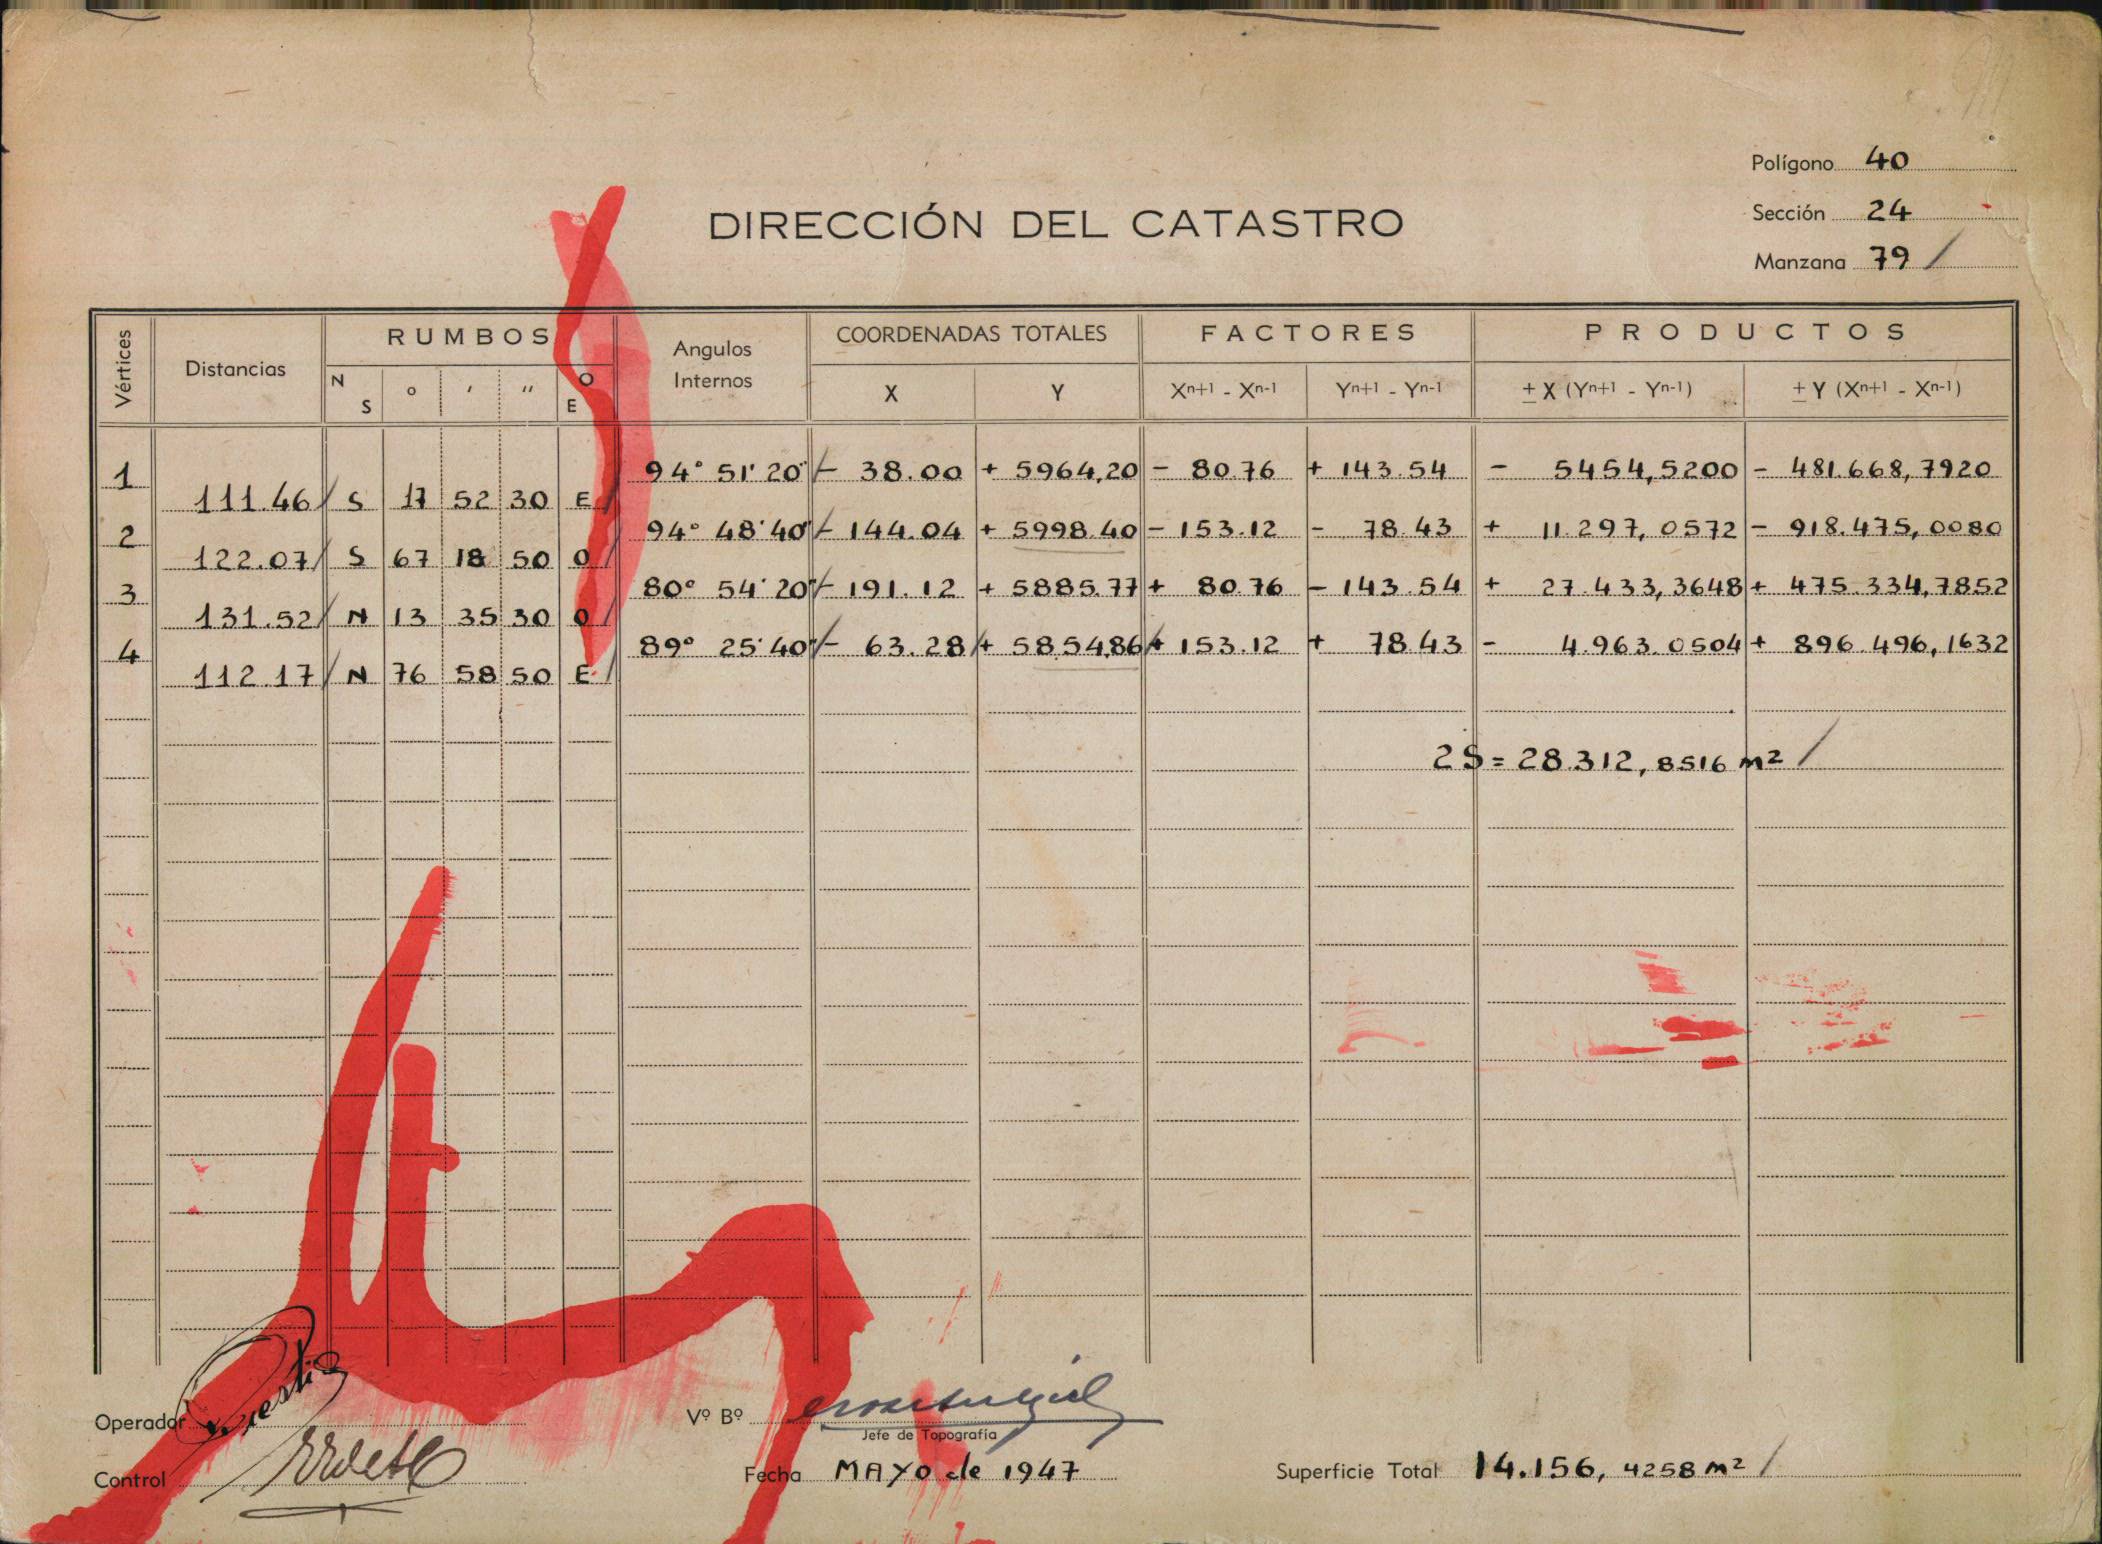 Polígono 40
Sección 24
DIRECCIÓN DEL CATASTRO
Manzana 79 /
Vértices Distancias RUMBOS Angulos Internos COORDENADAS TOTALES FACTORES PRODUCTOS
N S o ' '' O E X Y Xn+1 - Xn-1 Yn+1 - Yn-1 ± X (Yn+1 - Yn-1) ± Y (Xn+1 - Xn-1)
1 94° 51' 20'' - 38.00 + 5964,20 - 80.76 + 143.54 - 5454,5200 - 481.668,7920
111.46 / S 17 52 30 E /
2 94° 48' 40'' - 144.04 + 5998.40 - 153.12 - 78.43 + 11.297,0572 - 918.475,0080
122.07 / S 67 18 50 O /
3 80° 54' 20'' - 191.12 + 5885.77 + 80.76 - 143.54 + 27.433,3648 + 475.334,7852
131.52 / N 13 35 30 O /
4 89° 25' 40'' - 63.28 / + 5854,86 / + 153.12 + 78.43 - 4.963.0504 + 896.496,1632
112.17 / N 76 58 50 E /
2S = 28.312,8516 m² /
Operador
Vº Bº
Jefe de Topografía
Control
Fecha MAYO de 1947
Superficie Total 14.156,4258 m² /